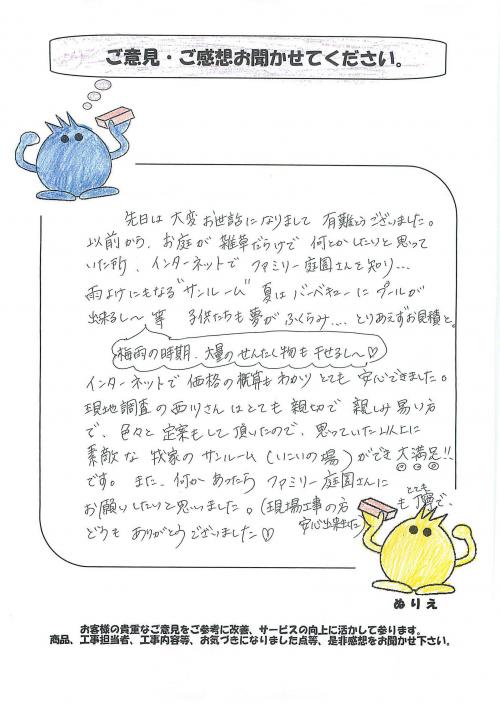 ご意見・ご感想お聞かせてください。
先日は大変お世話になりまして 有難とうございました。
以前から、お庭が 雑草だらけで 何とかしたいと思って
いた所、インターネットで ファミリー庭園さんを知り...
雨よけにもなる"サンルーム" 夏はバーベキューに プールが
出来るし〜 等 子供たちも夢がふくらみ.... とりあえずお見積と。
梅雨の時期、大量のせんたく物も干せるし〜♡
インターネットで 価格の概算も わかり とても 安心できました。
現地調査の西川さんはとても 親切で 親しみ易い方
で、色々と 定案もして頂いたので、思っていた以上に
素敵な 我家の サンルーム (いこいの場) ができ 大満足!!
です。 また、何かあったら ファミリー庭園さんに
お願いしたいと思いました。(現場工事の方 も とても 丁寧で、
安心出来ました)
どうも ありがとうございました♡
ぬりえ
お客様の貴重なご意見をご参考に改善、サービスの向上に活かして参ります。
商品、工事担当者、工事内容等、お気づきになりました点等、是非感想をお聞かせ下さい。